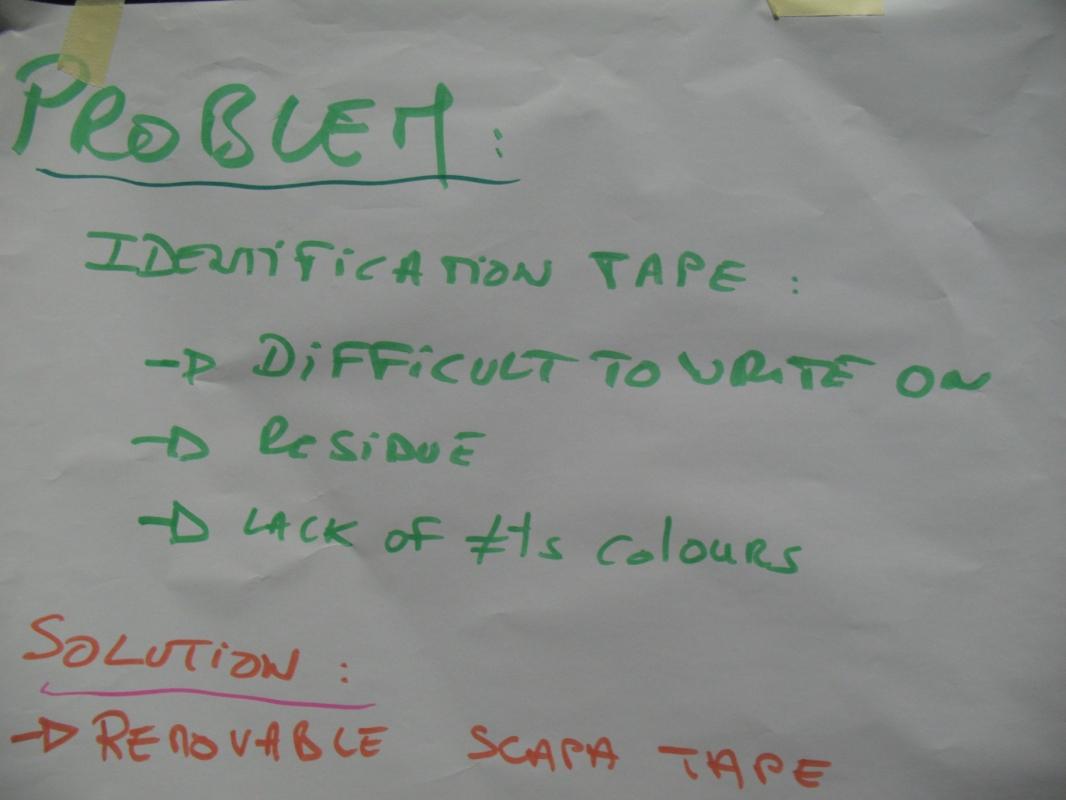 PROBLEM:
IDENTIFICATION TAPE :
→ DIFFICULT TO WRITE ON
→ RESIDUE
→ LACK OF ≠ts COLOURS
SOLUTION :
→ REMOVABLE SCAPA TAPE